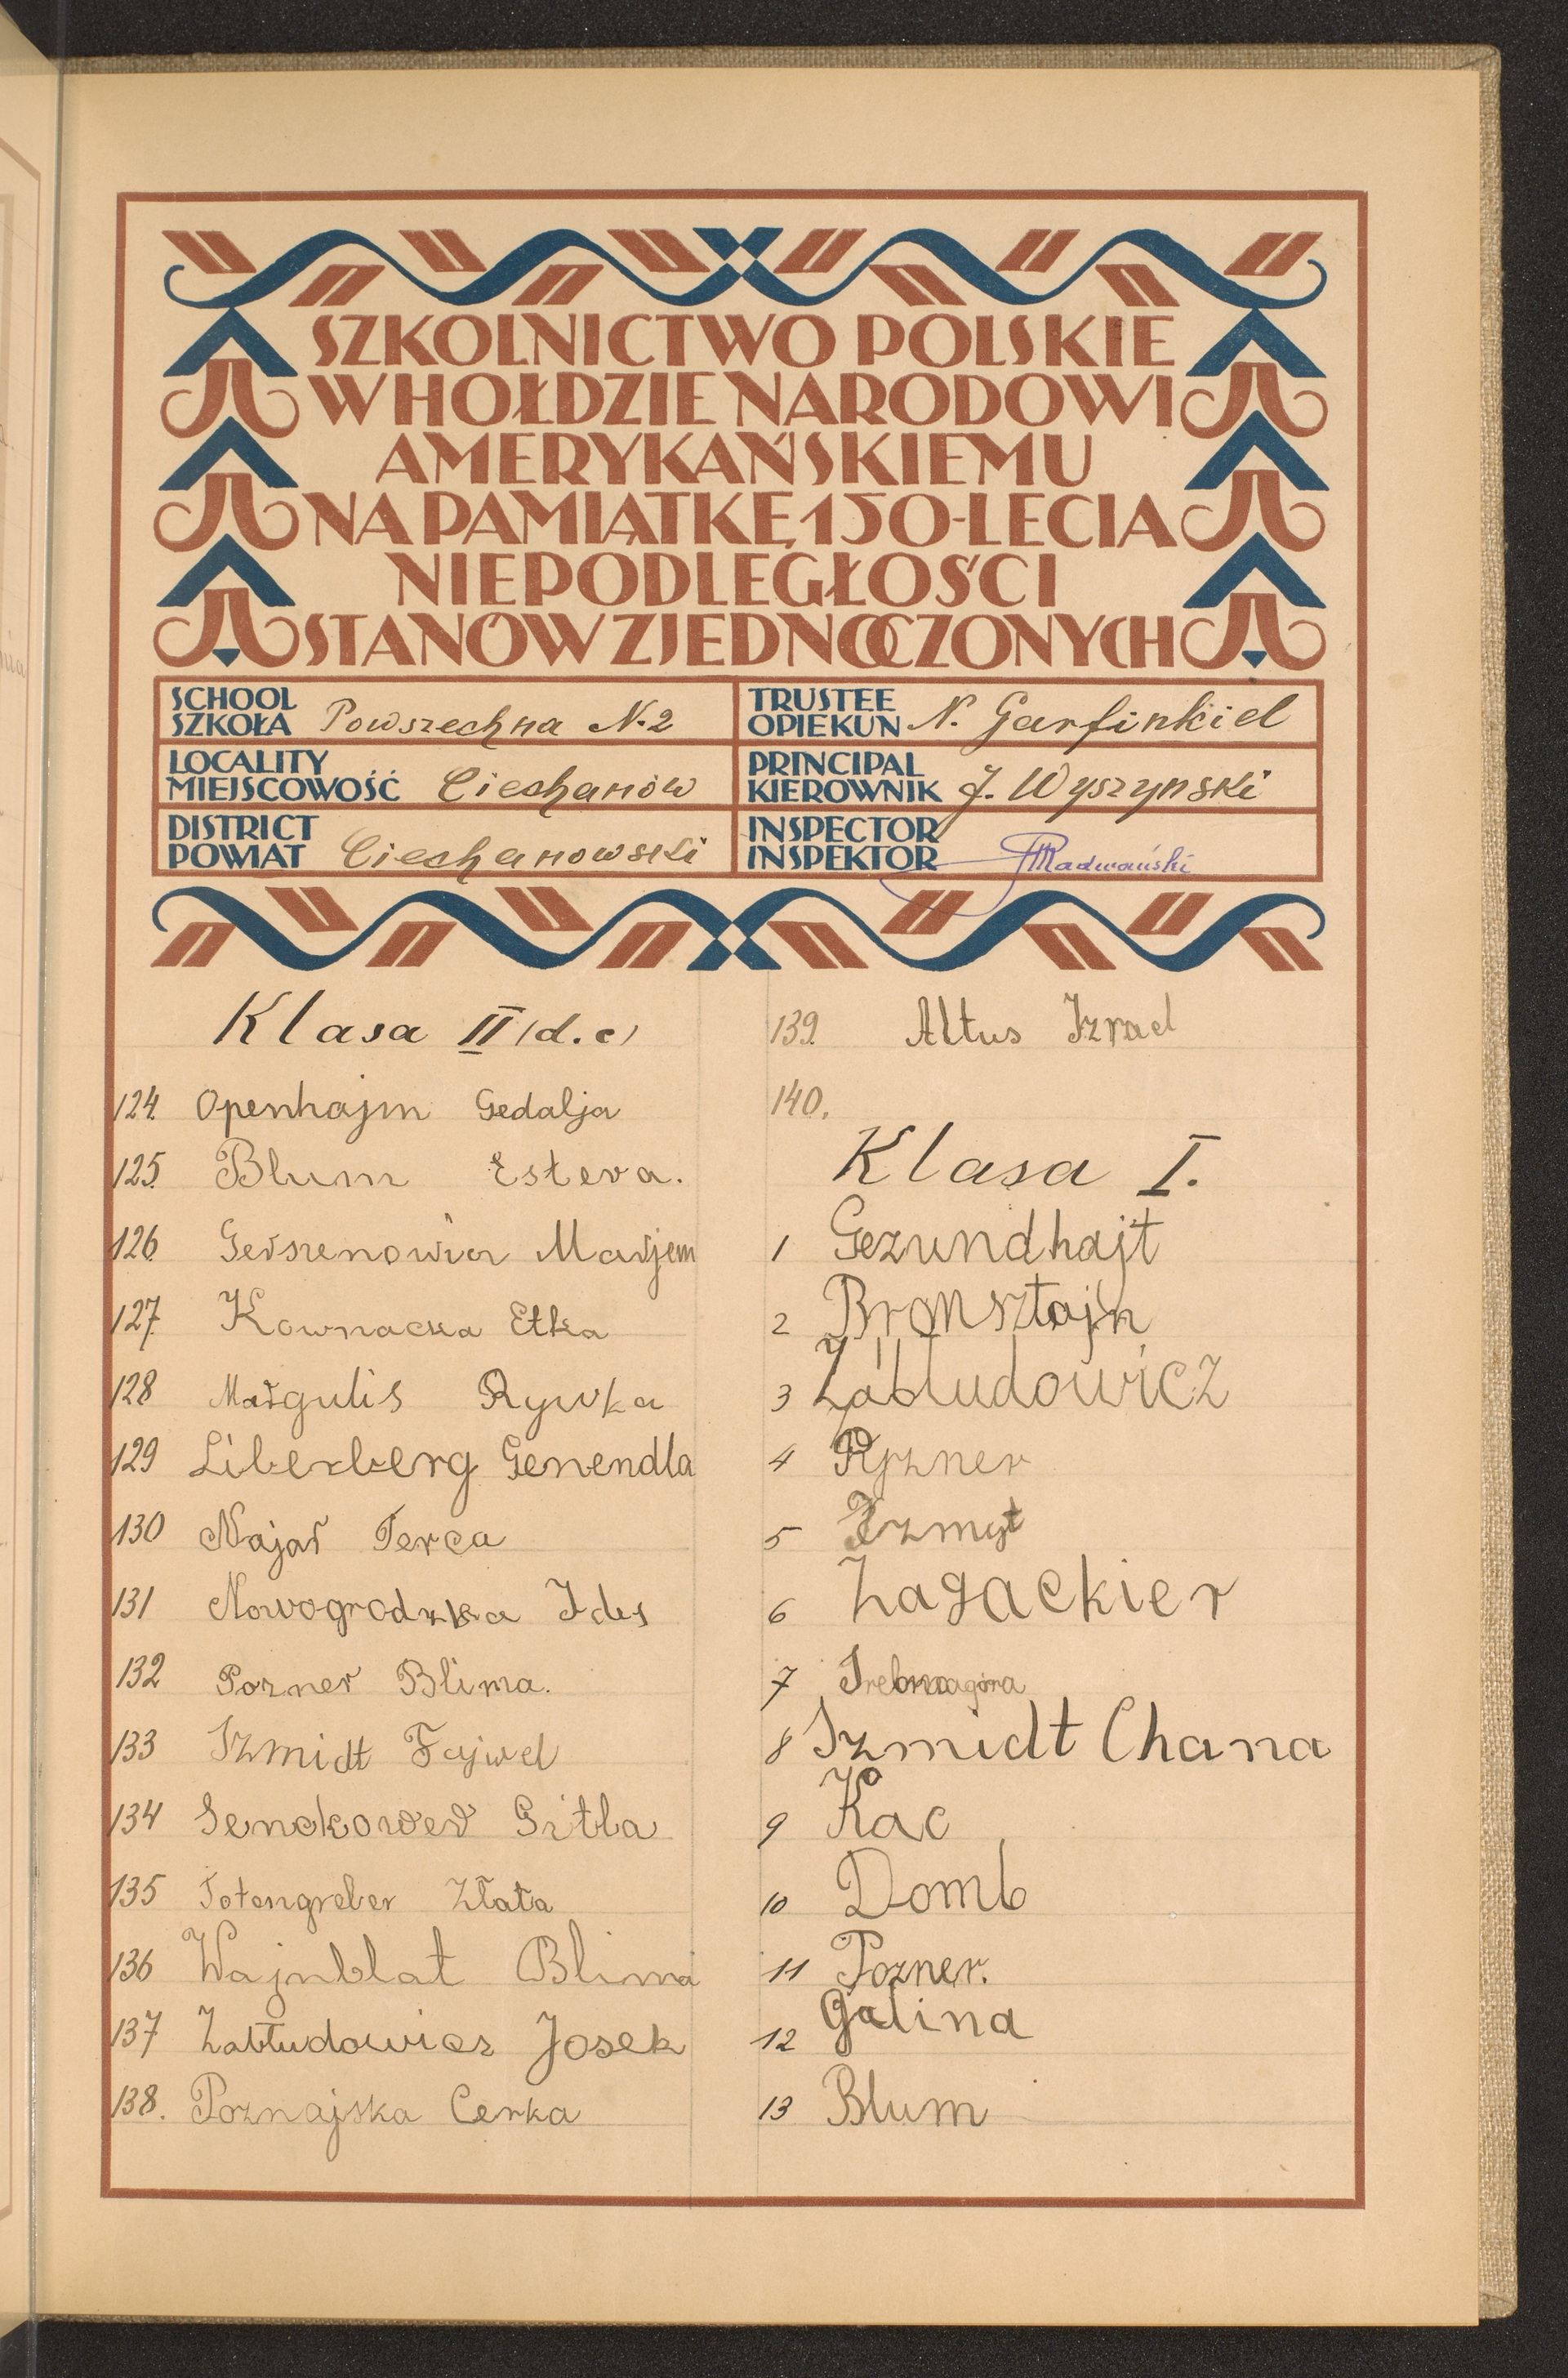 SZKOLNICTWO POLSKIE
W HOŁDZIE NARODOWI
AMERYKAŃSKIEMU
NA PAMIĄTKĘ 150-LECIA
NIEPODLEGŁOŚCI
STANÓW ZJEDNOCZONYCH
SCHOOL
SZKOŁA Powszechna N. 2
TRUSTEE
OPIEKUN N. Garfinkiel
LOCALITY
MIEJSCOWOŚĆ Ciechanów
PRINCIPAL
KIEROWNIK J. Wyszynski
DISTRICT
POWIAT Ciechanowski
INSPECTOR
INSPEKTOR Radwański
Klasa II (d. c)
124. Openhajm Gedalja
125. Blum Estera.
126. Gerszenowicz Marjem
127. Kownacka Etka
128 Margulis Rywka
129 Liberberg Genendla
130 Najar Terca
131 Nowogrodzka Ides
132 Pozner Blima.
133 Szmidt Fajwel
134 Gitla
135 Totengreber Złata
136 Wajnblat Blima
137 Zabłudowicz Josek
138. Poznajska Cerka
139. Altus Izrael
140.
Klasa I.
1 Gezundhajt
2 Bronsztajn
3 Zabłudowicz
4 Pyzner
5
6 Zagackier
7 Srebrnagóra
8 Szmidt Chana
9 Kac
10 Domb
11 Pozner.
12 Galina
13 Blum